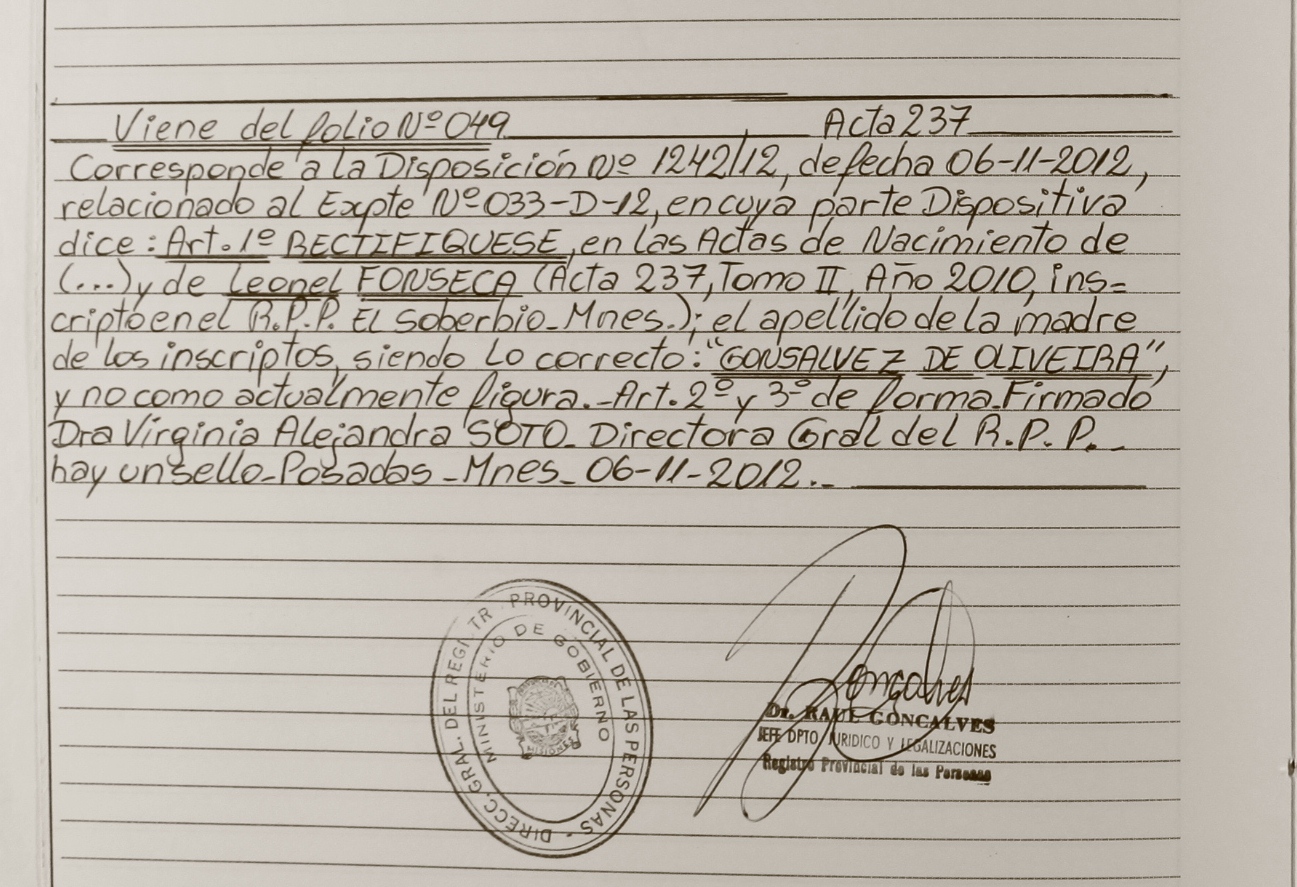 Viene del folio Nº 049 Acta 237
Corresponde a la Disposición Nº 1242/12, de fecha 06-11-2012,
relacionado al Expte Nº 033-D-12, en cuya parte Dispositiva
dice: Art. 1º RECTIFIQUESE, en las Actas de Nacimiento de
(...) y de Leonel FONSECA (Acta 237, Tomo II, Año 2010, ins=
cripto en el R.P.P. El Soberbio-Mnes.); el apellido de la madre
de los inscriptos, siendo lo correcto: "GONSALVEZ DE OLIVEIRA",
y no como actualmente figura.-Art. 2º y 3º de forma.Firmado
Dra Virginia Alejandra SOTO- Directora Gral del R.P.P.-
hay un sello-Posadas-Mnes- 06-11-2012.-
DIRECC. GRAL. DEL REGI TR PROVINCIAL DE LAS PERSONAS -
MINISTERIO DE GOBIERNO
MISIONES
Goncalves
Dr. RAUL GONCALVES
JEFE DPTO JURIDICO Y LEGALIZACIONES
Registro Provincial de las Personas